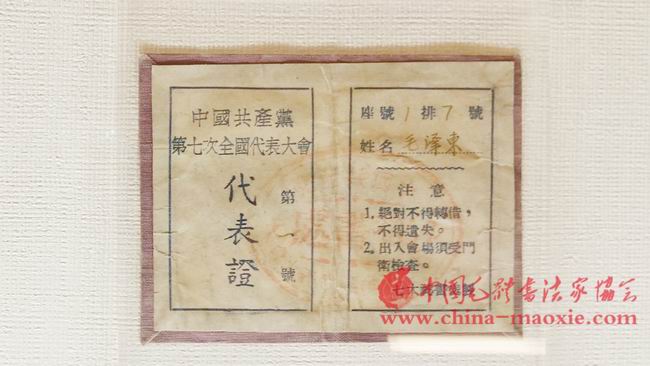 中國共產黨
第七次全國代表大會
代表證
第一號
座號1排7號
姓名毛澤東
注意
1.絕對不得轉借，
不得遺失。
2.出入會場須受門
衛檢查。
七大
中国毛体书法家协会
www.china-maoxie.com